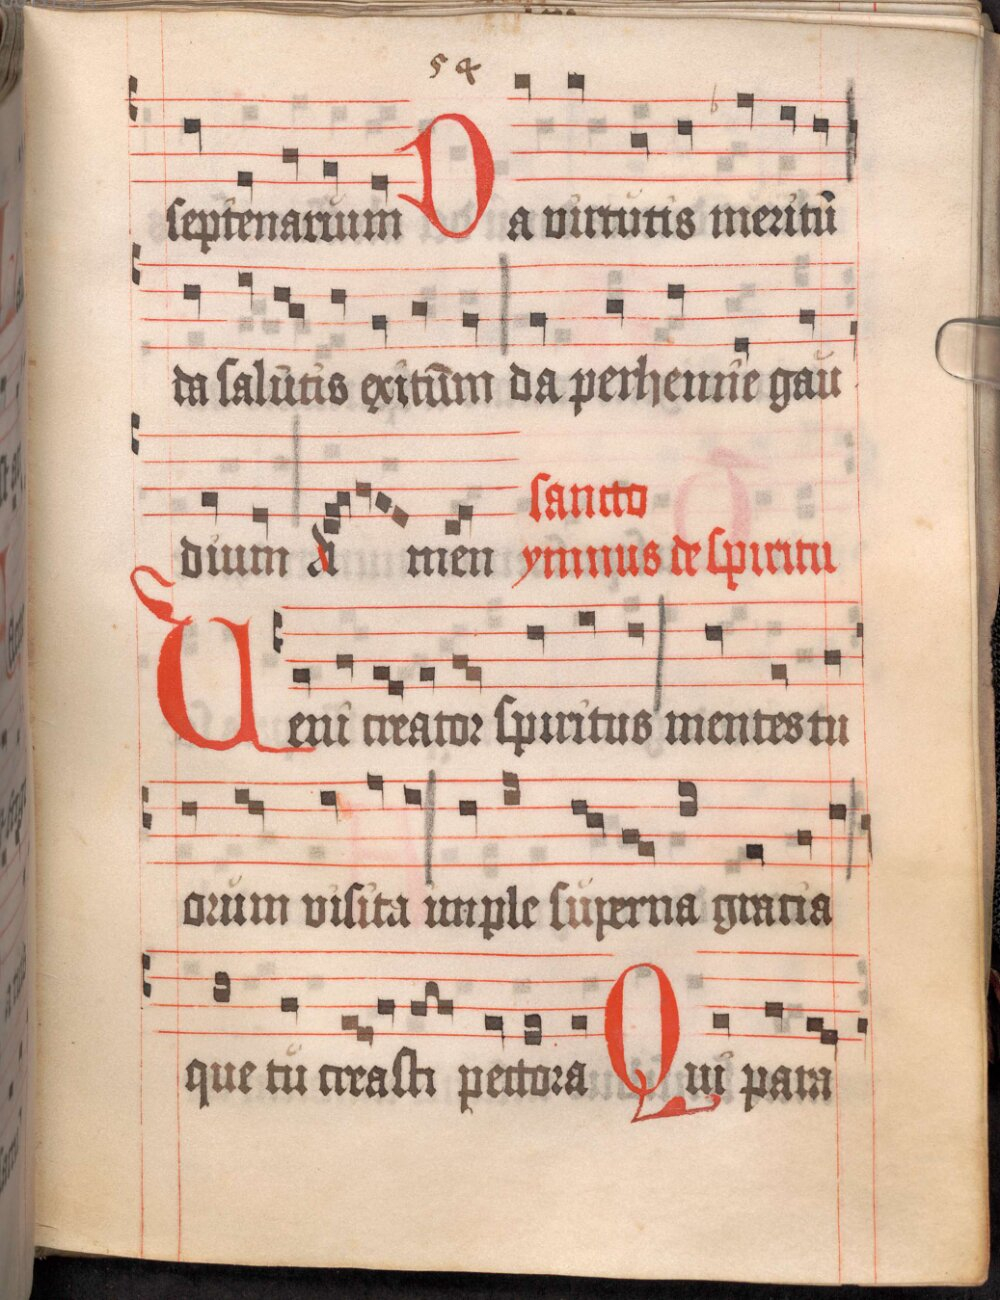 54
septenarium Da virtutis meritū
da salutis exitum da perhenne gau
dium A men sancto
ymnus de spiritu
Ueni creator spiritus mentes tu
orum visita imple superna gracia
que tu creasti pectora Qui para